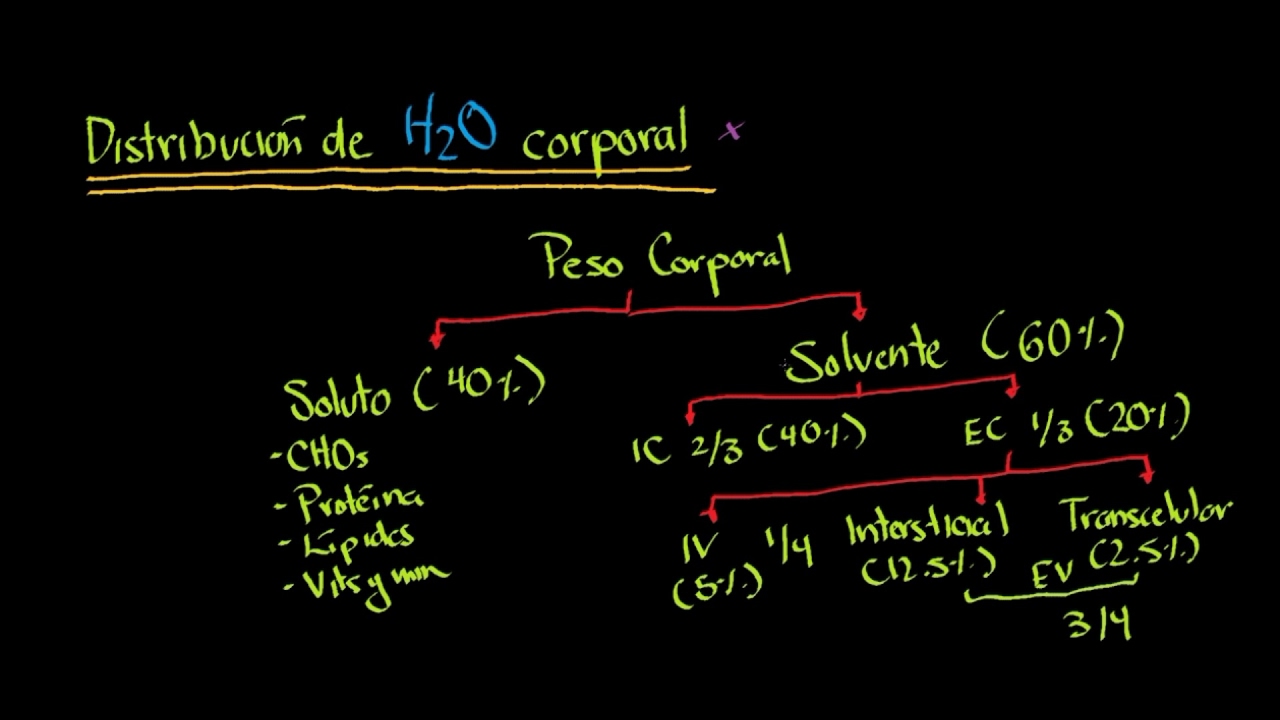 Distribución de H2O corporal x
Peso Corporal
Solvente (60%)
Soluto (40%)
IC 2/3 (40%)
EC 1/3 (20%)
-CHOs
-Protéina
-Lípidos
-Vits y min
IV 1/4
(5%)
Intersticial
(12.5%)
Transcelular
(2.5%)
EV
3/4